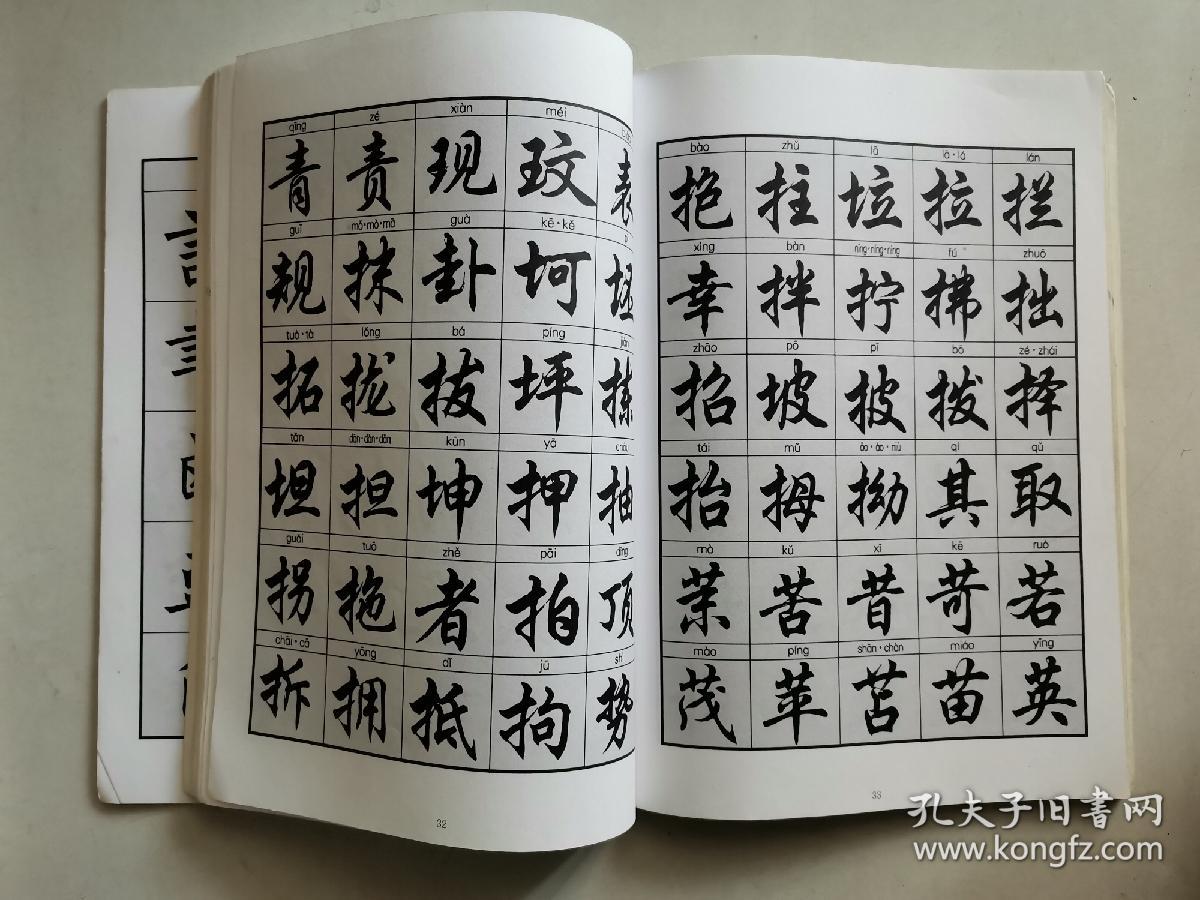 qīng zé xiàn méi
青 责 现 玫 表
guī mǒ·mò·mā guà kē·kě
规 抹 卦 坷 坯
tuò·tà lǒng bá píng jiǎn
拓 拢 拔 坪 拣
tǎn dān·dàn·dǎn kūn yā chōu
坦 担 坤 押 抽
guǎi tuō zhě pāi dǐng
拐 拖 者 拍 顶
chāi·cā yōng dǐ jū sh
拆 拥 抵 拘 势
32
bào zhǔ lā lā·lá lán
抱 拄 垃 拉 拦
xìng bàn níng·nǐng·nìng fú zhuō
幸 拌 拧 拂 拙
zhāo pō pī bō zé·zhái
招 坡 披 拨 择
tái mǔ ǎo·ào·niù qí qǔ
抬 拇 拗 其 取
mò kǔ xī kē ruò
茉 苦 昔 苛 若
mào píng shān·shàn miáo yīng
茂 苹 苫 苗 英
33
孔夫子旧书网
www.kongfz.com